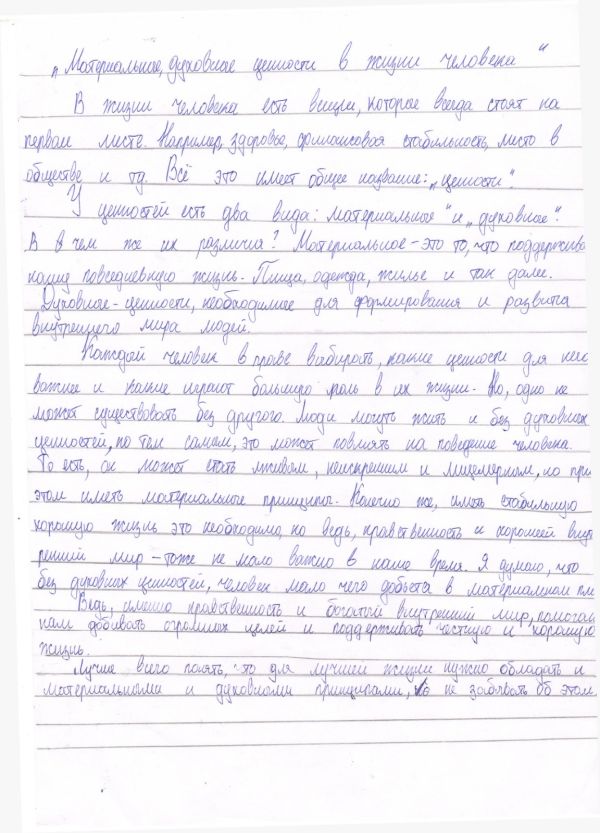 „Материальное, духовное ценности в жизни человека“
В жизни человека есть вещи, которые всегда стоят на
первом месте. Например, здоровье, финансовая стабильность, место в
обществе и тд. Всё это имеет общее название: „ценности“.
У ценностей есть два вида: материальное“ и „духовное“.
А в чем же их различия? Материальное – это то, что поддержива
нашу повседневную жизнь. Пища, одежда, жилье и так далее.
Духовное – ценности, необходимые для формирования и развития
внутреннего мира людей.
Каждый человек в праве выбирать, какие ценности для него
важнее и какие играют большую роль в их жизни. Но, одно не
может существовать без другого. Люди могут жить и без духовных
ценностей, но тем самым, это может повлиять на поведение человека.
То есть, он может стать лживым, неискренним и лицемерным, но при
этом иметь материальные принципы. Конечно же, иметь стабильную
хорошую жизнь это необходимо, но ведь, нравственность и хороший внут
ренний мир – тоже не мало важно в наше время. Я думаю, что
без духовных ценностей, человек мало чего добьется в материальном пла
Ведь, именно нравственность и богатый внутренний мир, помогаю
нам добывать огромных целей и поддерживать честную и хорошую
жизнь.
Лучше всего понять, что для лучшей жизни нужно обладать и
материальными и духовными принципами, не забывать об этом.